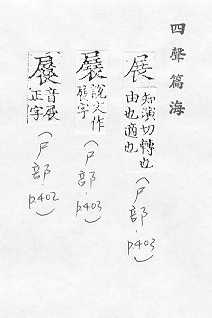 四聲篇海
展
知演切轉也
由也適也
(尸部 p403)
說文作
字
(尸部 p403)
音展
正字
(尸部 p402)